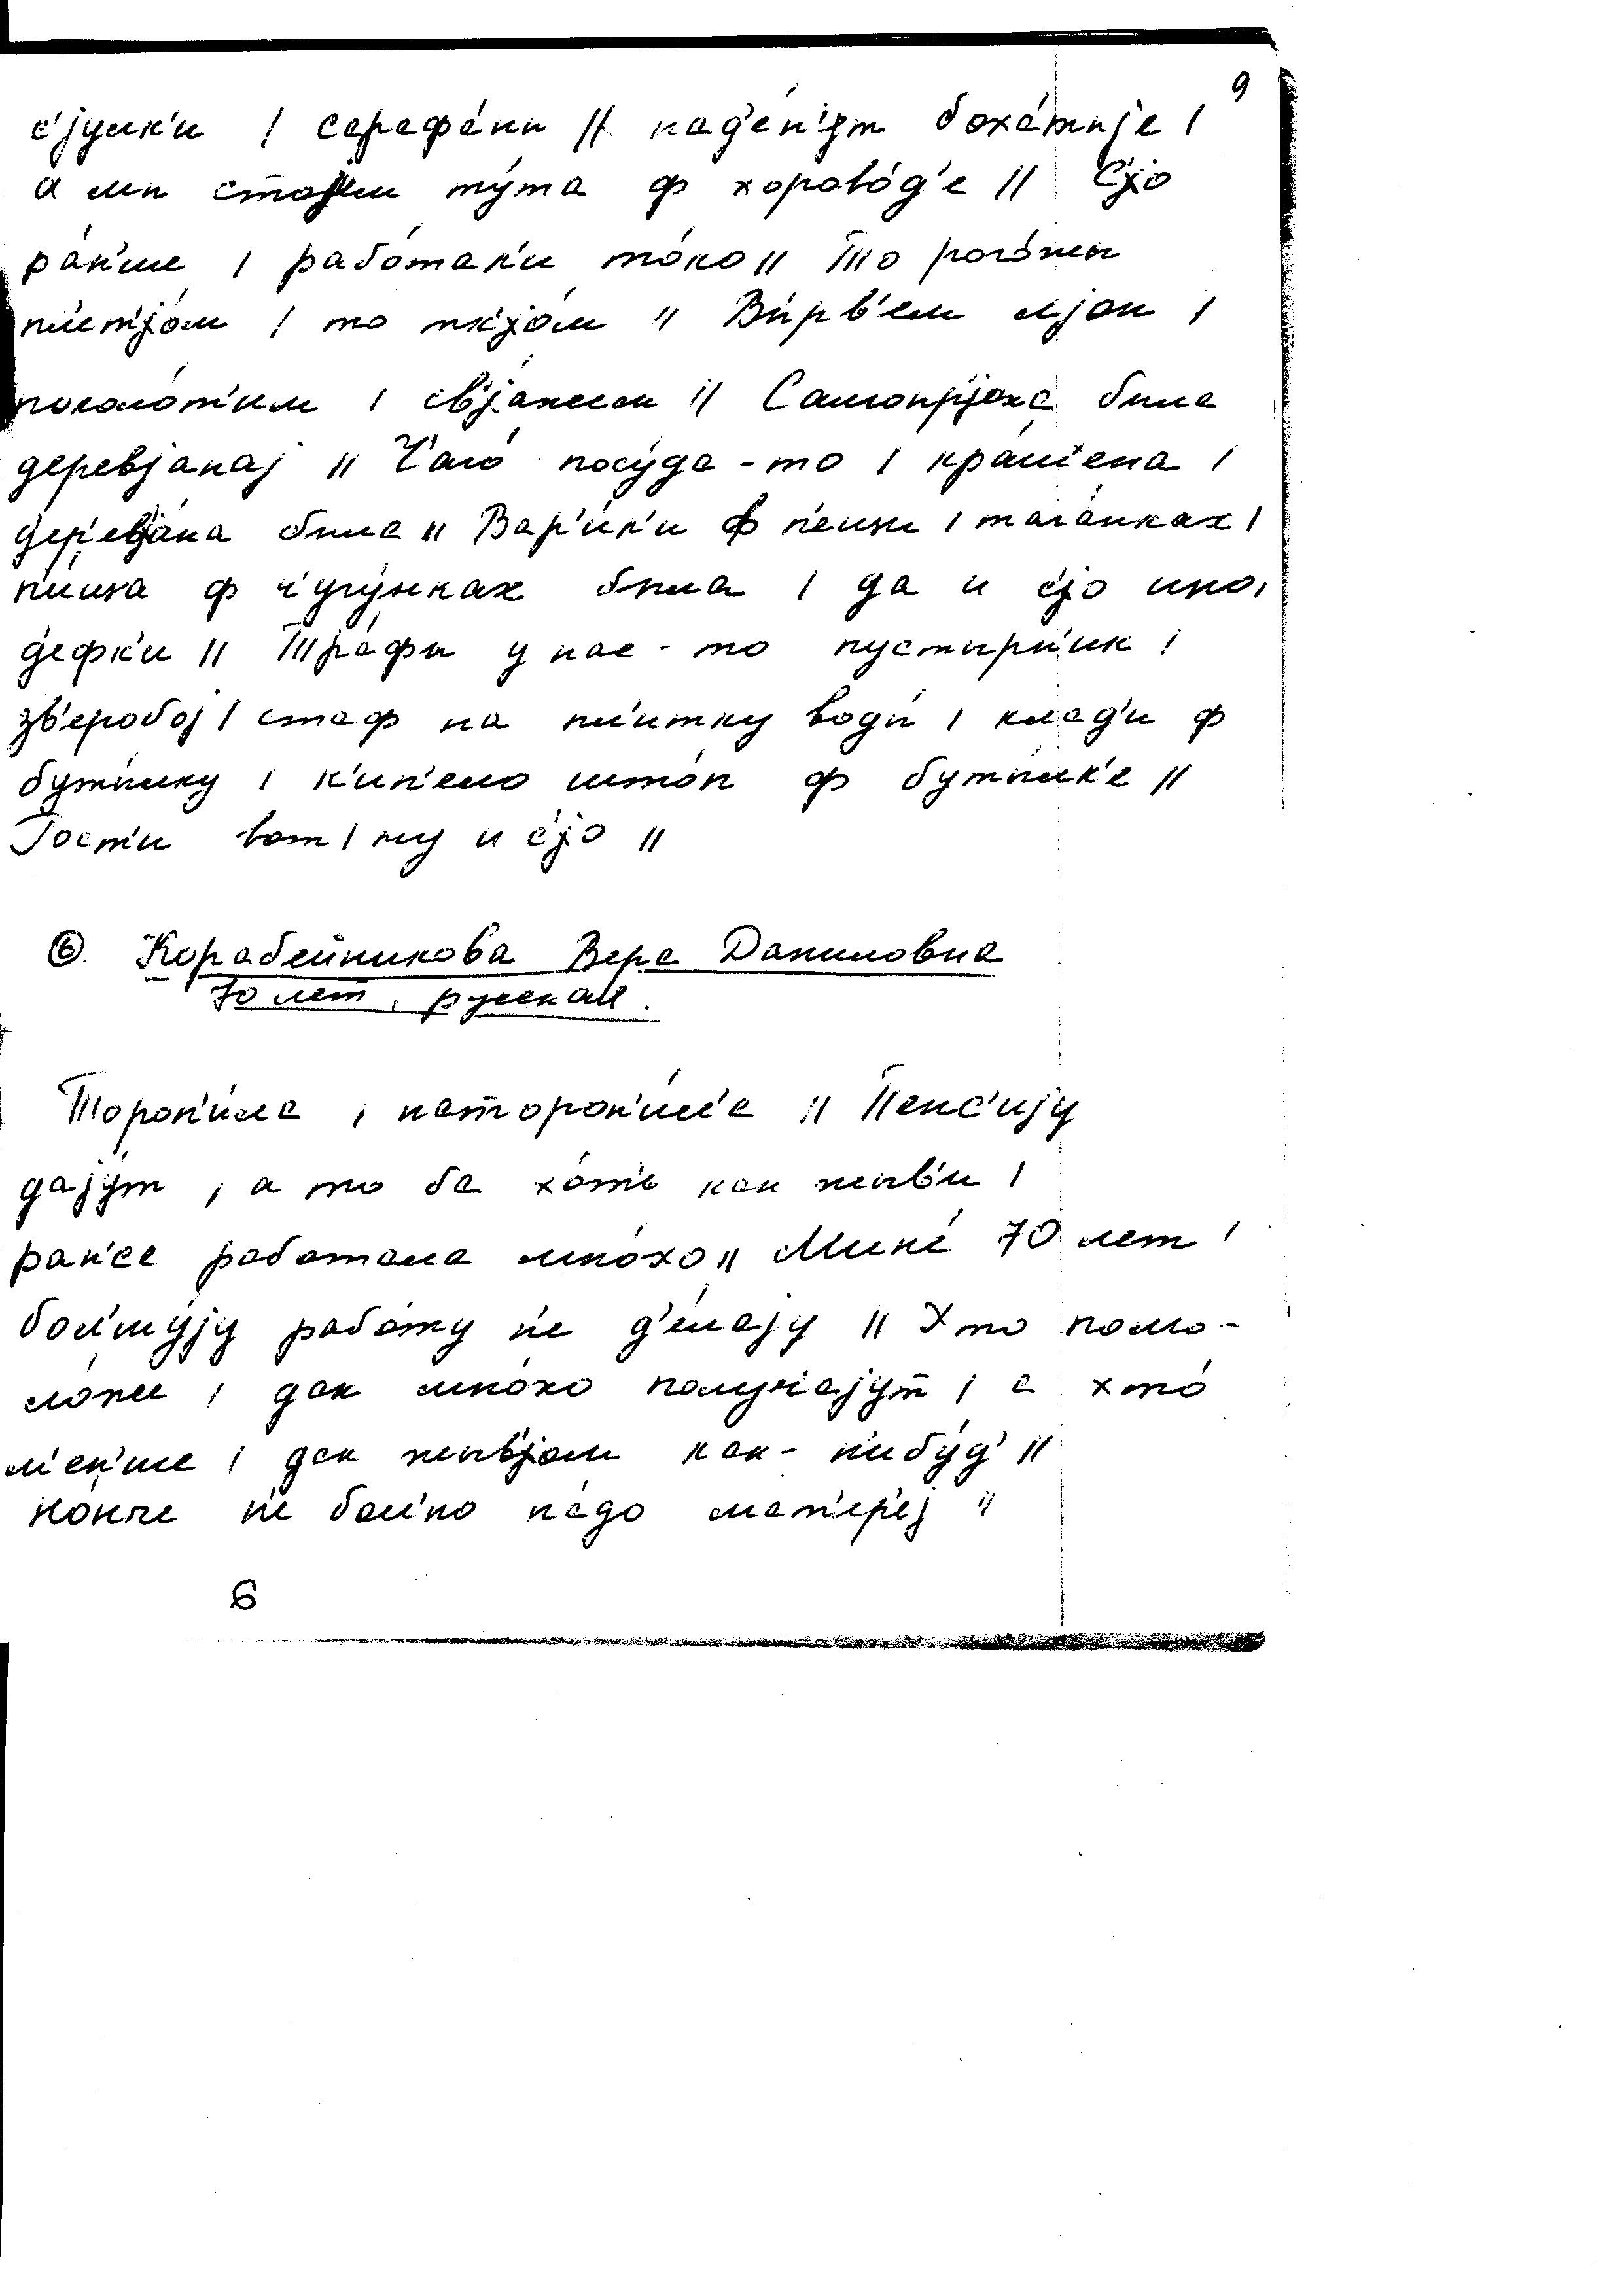 9
с'јулк'и | сарафа́ны || над'е́н'ут боха́тыје |
а мы стојим ту́та ф хорово́д'е || С'јо
ра́н'ше | рабо́тал'и то́ко || То рого́жы
пл'ет'јо́м | то тк'јо́м || Вы́рв'ем л'јон |
поколо́т'им | св'ја́жем || Самопр'јаха была
деревјанај || Ч'аго́ посу́да-то | кра́шена |
д'ер'евја́на была || Вар'и́л'и ф п'ечи | тага́нках |
п'и́ша ф ч'угу́нках была | да и с'јо
д'ефк'и || Тра́фы у нас-то пустырн'ик |
зв'еробој | стаф на пл'итку воды́ | клад'и ф
буты́лку | к'ип'ело што́п ф буты́лк'е ||
Гост'и вот | ну и с'јо ||
⑥. Корабейникова Вера Даниловна
70 лет, русская.
Тороп'и́ла, наторон'и́л'а || Пенс'ију
дају́т, а то ба хот'ь как жыв'и |
ран'се работала мно́хо || Мин'е́ 70 лет |
бол'шу́ју рабо́ту н'е д'е́лају || Хто помо-
ло́же | дак мно́хо получ'ајут | а хто́
м'ен'ше | дак жыв'јом как-н'ибу́д' ||
но́нче н'е бол'но на́до мат'ер'еј ||
6